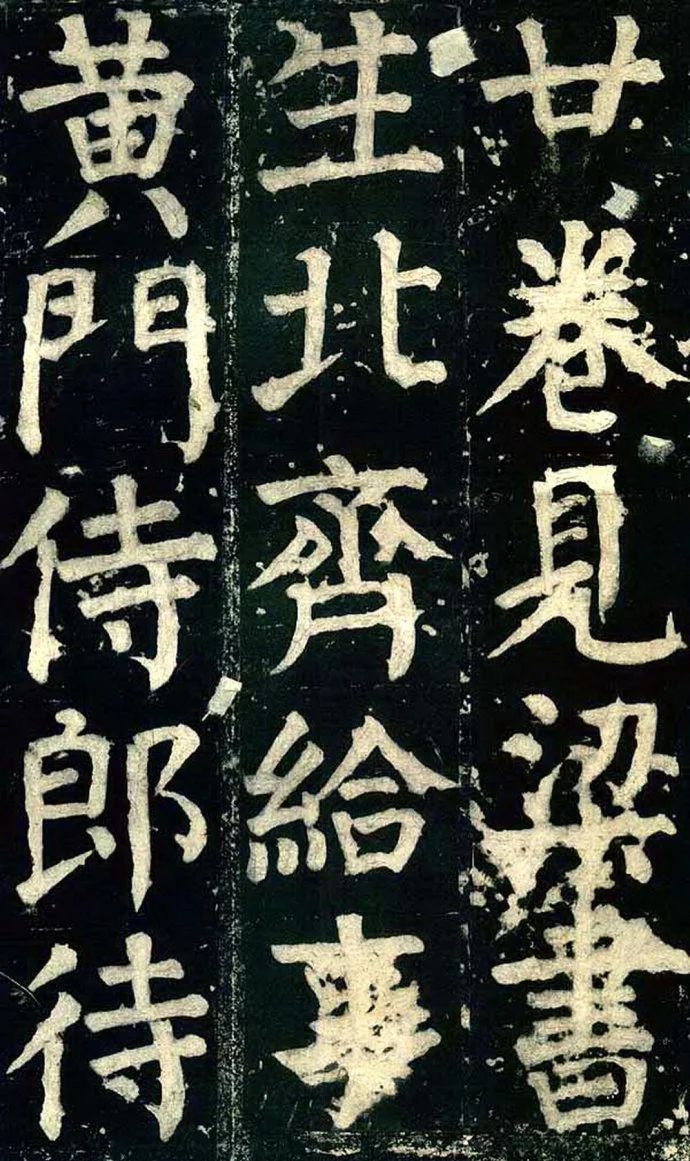 廿卷見梁書
生北齊給事
黃門侍郎待